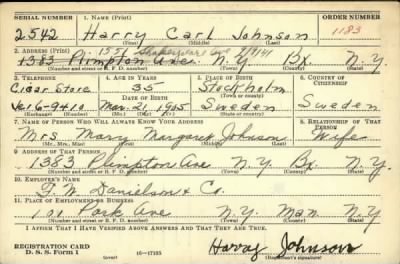 SERIAL NUMBER 1. NAME (Print) ORDER NUMBER
2542 Harry Carl Johnson 1183
(First) (Middle) (Last)
2. ADDRESS (Print) 1551 Shakespeare Ave 2/8/41
1383 Plimpton Ave. N.Y. Bx. N.Y.
(Number and street or R. F. D. number) (Town) (County) (State)
3. TELEPHONE 4. AGE IN YEARS 5. PLACE OF BIRTH 6. COUNTRY OF CITIZENSHIP
Cigar Store 35 Stockholm
DATE OF BIRTH (Town or county)
Je. 6-9410 Mar. 21, 1905 Sweden Sweden
(Exchange) (Number) (Mo.) (Day) (Yr.) (State or country)
7. NAME OF PERSON WHO WILL ALWAYS KNOW YOUR ADDRESS 8. RELATIONSHIP OF THAT PERSON
Mrs. Mary Margaret Johnson Wife
(Mr., Mrs., Miss) (First) (Middle) (Last)
9. ADDRESS OF THAT PERSON
1383 Plimpton Ave N.Y. Bx N.Y.
(Number and street or R. F. D. number) (Town) (County) (State)
10. EMPLOYER'S NAME
F. W. Danielson & Co.
11. PLACE OF EMPLOYMENT OR BUSINESS
101 Park Ave N.Y. Man. N.Y.
(Number and street or R. F. D. number) (Town) (County) (State)
I AFFIRM THAT I HAVE VERIFIED ABOVE ANSWERS AND THAT THEY ARE TRUE.
REGISTRATION CARD
D. S. S. Form 1 (over) 16—17105 Harry Johnson
(Registrant's signature)